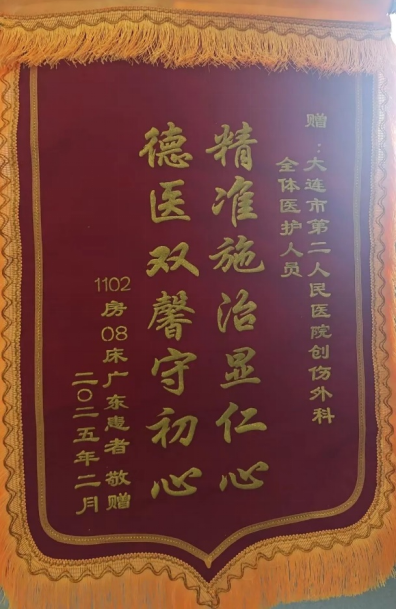 赠：大连市第二人民医院创伤外科
全体医护人员
精准施治显仁心
德医双馨守初心
1102房08床广东患者 敬赠
二〇二五年二月